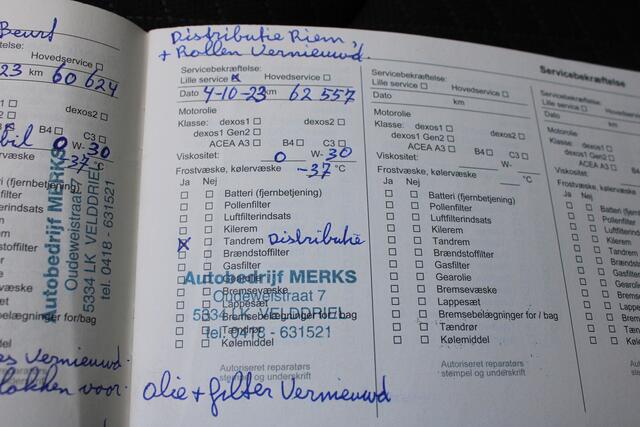 Beurt
Hovedservice ☐
23 km 60 624
dexos2 ☐
B4 ☐ C3 ☐
0 W- 30
-37 °C
Autobedrijf MERKS
Oudeweistraat 7
5334 LK VELDDRIEL
tel. 0418 - 631521
Vernieuwd.
voor.
Distributie Riem,
+ Rollen Vernieuwd.
Servicebekræftelse:
Lille service ☒ Hovedservice ☐
Dato 4-10-23 km 62 557
Motorolie
Klasse: dexos1 ☐ dexos2 ☐
dexos1 Gen2 ☐
ACEA A3 ☐ B4 ☐ C3 ☐
Viskositet: 0 W- 30
Frostvæske, kølervæske -37 °C
Ja Nej
☐ ☐ Batteri (fjernbetjening)
☐ ☐ Pollenfilter
☐ ☐ Luftfilterindsats
☐ ☐ Kilerem
☒ ☐ Tandrem Distributie
☐ ☐ Brændstoffilter
☐ ☐ Gasfilter
☐ ☐ Gearolie
☐ ☐ Bremsevæske
☐ ☐ Lappesæt
☐ ☐ Bremsebelægninger for / bag
☐ ☐ Tændrør
☐ ☐ Kølemiddel
Autobedrijf MERKS
Oudeweistraat 7
5334 LK VELDDRIEL
tel. 0418 - 631521
Autoriseret reparatørs
stempel og underskrift
olie + filter Vernieuwd
Servicebekræftelse:
Lille service ☐ Hovedservice ☐
Dato km
Motorolie
Klasse: dexos1 ☐ dexos2 ☐
dexos1 Gen2 ☐
ACEA A3 ☐ B4 ☐ C3 ☐
Viskositet: W-
Frostvæske, kølervæske °C
Ja Nej
☐ ☐ Batteri (fjernbetjening)
☐ ☐ Pollenfilter
☐ ☐ Luftfilterindsats
☐ ☐ Kilerem
☐ ☐ Tandrem
☐ ☐ Brændstoffilter
☐ ☐ Gasfilter
☐ ☐ Gearolie
☐ ☐ Bremsevæske
☐ ☐ Lappesæt
☐ ☐ Bremsebelægninger for / bag
☐ ☐ Tændrør
☐ ☐ Kølemiddel
Autoriseret reparatørs
stempel og underskrift
Servicebekræftelse
Servicebekræftelse:
Lille service ☐
Dato
Motorolie
Klasse: dexos1 ☐
dexos1 Gen2 ☐
ACEA A3 ☐
Viskositet:
Frostvæske, kølervæske
Ja Nej
☐ ☐ Batteri
☐ ☐ Pollenfilter
☐ ☐ Luftfilterindsats
☐ ☐ Kilerem
☐ ☐ Tandrem
☐ ☐ Brændstoffilter
☐ ☐ Gasfilter
☐ ☐ Gearolie
☐ ☐ Bremsevæske
☐ ☐ Lappesæt